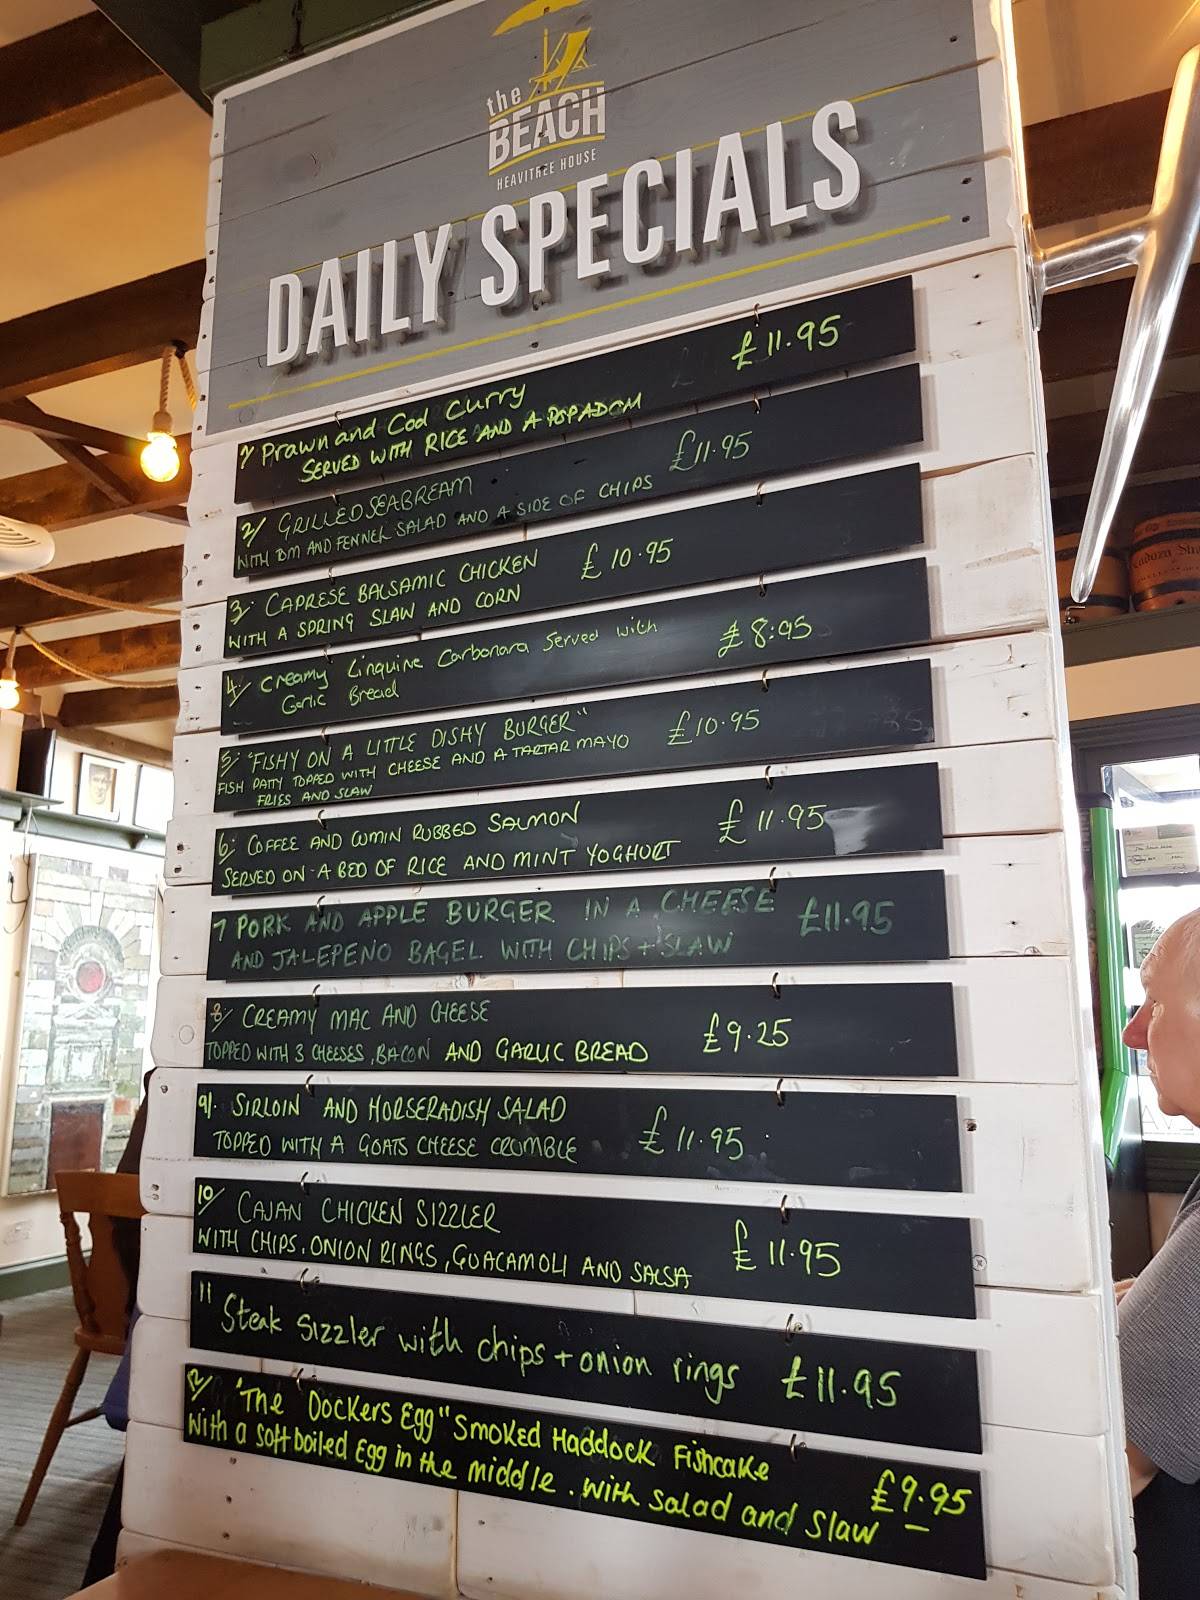 the
BEACH
HEAVITREE HOUSE
DAILY SPECIALS
1/ Prawn and Cod Curry £11.95
SERVED WITH RICE AND A POPADOM
2/ GRILLED SEABREAM £11.95
WITH TOM AND FENNEL SALAD AND A SIDE OF CHIPS
3/. CAPRESE BALSAMIC CHICKEN £10.95
WITH A SPRING SLAW AND CORN
4/ Creamy Linguine Carbonara Served with £8.95
Garlic Bread
5/. "FISHY ON A LITTLE DISHY BURGER" £10.95
FISH PATTY TOPPED WITH CHEESE AND A TARTAR MAYO
FRIES AND SLAW
6/. COFFEE AND CUMIN RUBBED SALMON £11.95
SERVED ON A BED OF RICE AND MINT YOGHURT
7 PORK AND APPLE BURGER IN A CHEESE £11.95
AND JALEPENO BAGEL WITH CHIPS + SLAW
8/. CREAMY MAC AND CHEESE £9.25
TOPPED WITH 3 CHEESES, BACON AND GARLIC BREAD
9/. SIRLOIN AND HORSERADISH SALAD £11.95
TOPPED WITH A GOATS CHEESE CRUMBLE
10/ CAJAN CHICKEN SIZZLER £11.95
WITH CHIPS, ONION RINGS, GUACAMOLI AND SALSA
11 Steak Sizzler with chips + onion rings £11.95
12/ "The Dockers Egg" Smoked Haddock Fishcake
with a soft boiled Egg in the middle. with salad and slaw £9.95